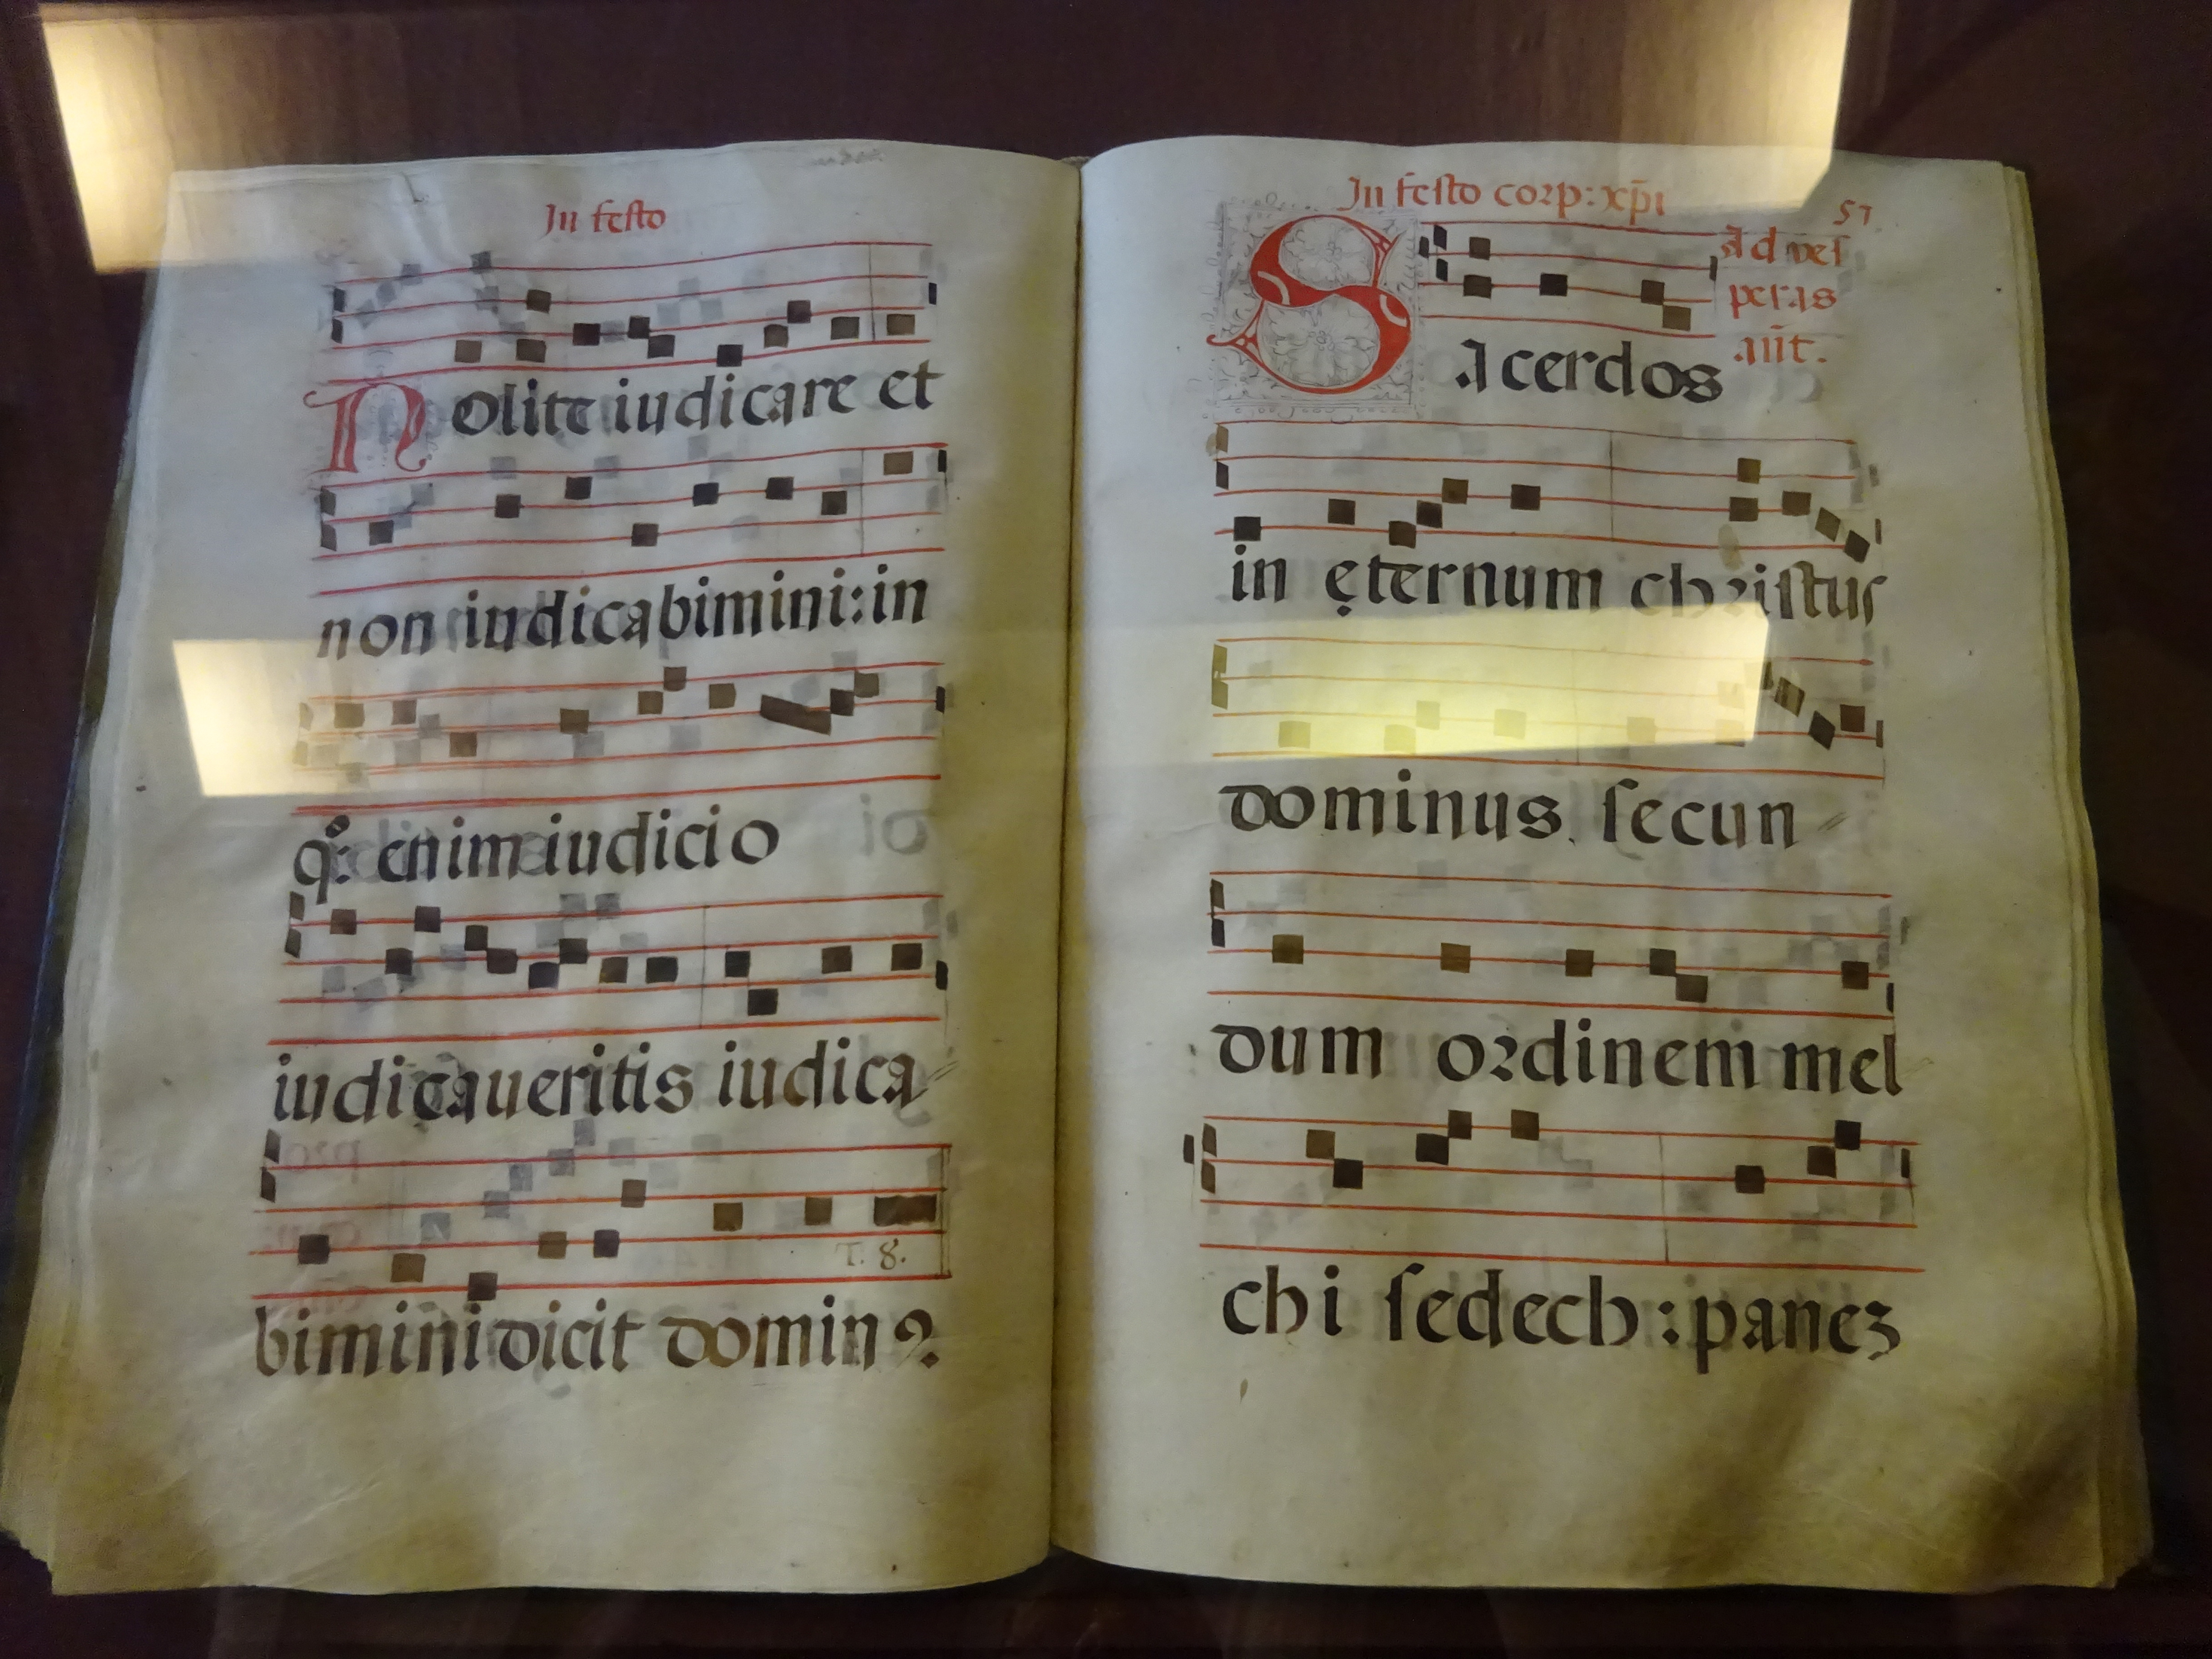 In festo
Nolite iudicare et
non iudicabimini: in
qº: enim iudicio
iudicaueritis iudica
T. 8.
bimini dicit domin9.
In festo corp: xp̄i
57.
ad ves
peras
añt.
Sacerdos
in ęternum christus
dominus. secun
dum ordinem mel
chi sedech: panez